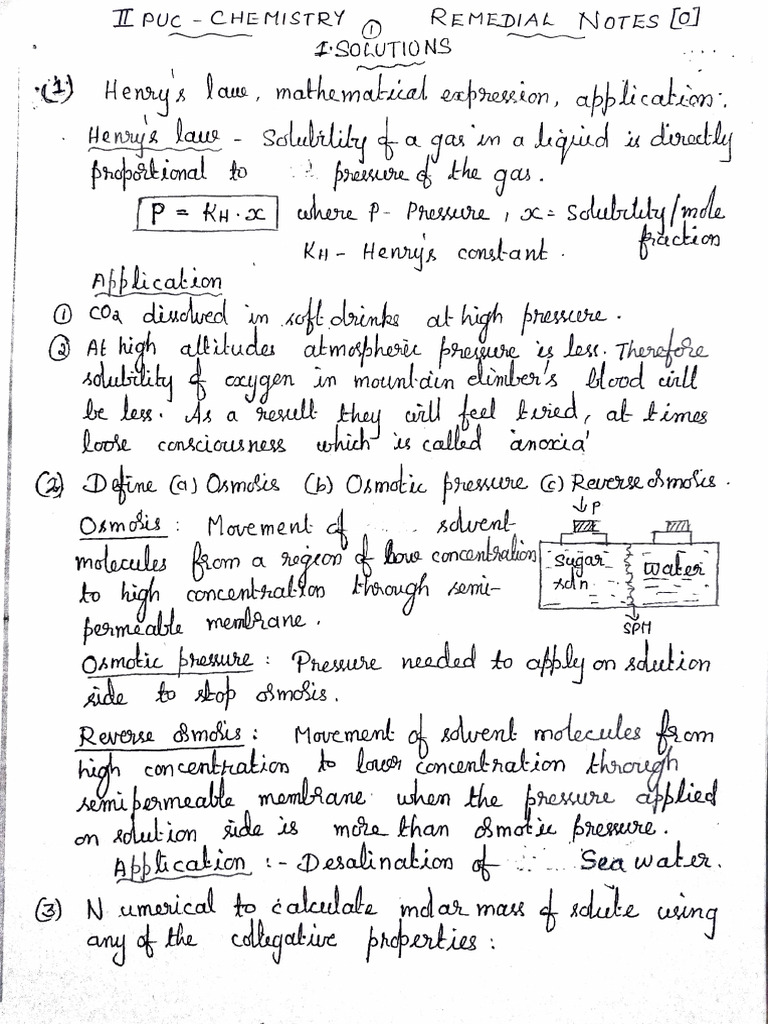 II PUC - CHEMISTRY REMEDIAL NOTES [0]
①
1. SOLUTIONS
(1) Henry's law, mathematical expression, application.
Henry's law - Solubility of a gas in a liquid is directly
proportional to pressure of the gas.
P = KH · x where P - Pressure, x = Solubility/mole
fraction
KH - Henry's constant.
Application
① CO2 dissolved in soft drinks at high pressure.
② At high altitudes atmospheric pressure is less. Therefore
solubility of oxygen in mountain climber's blood will
be less. As a result they will feel tired, at times
loose consciousness which is called 'anoxia'
(2) Define (a) Osmosis (b) Osmotic pressure (c) Reverse osmosis.
↓P
Osmosis : Movement of solvent
molecules from a region of low concentration
to high concentration through semi-
permeable membrane.
Sugar soln
water
SPM
Osmotic pressure : Pressure needed to apply on solution
side to stop osmosis.
Reverse osmosis : Movement of solvent molecules from
high concentration to lower concentration through
semipermeable membrane when the pressure applied
on solution side is more than osmotic pressure.
Application :- Desalination of Sea water.
(3) Numerical to calculate molar mass of solute using
any of the collegative properties :